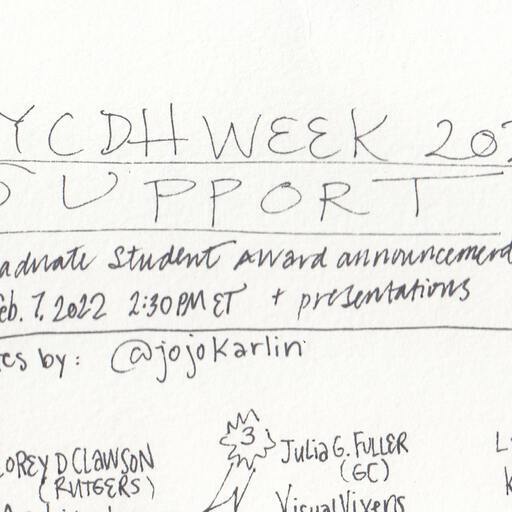 YCDHWEEK 202
SUPPORT
aduate Student Award announcement
eb. 7, 2022 2:30PM ET + presentations
es by: @jojokarlin
3
OREY D CLAWSON
JULIA G. FULLER
L
(RUTGERS)
(GC)
K
Visual Vixens